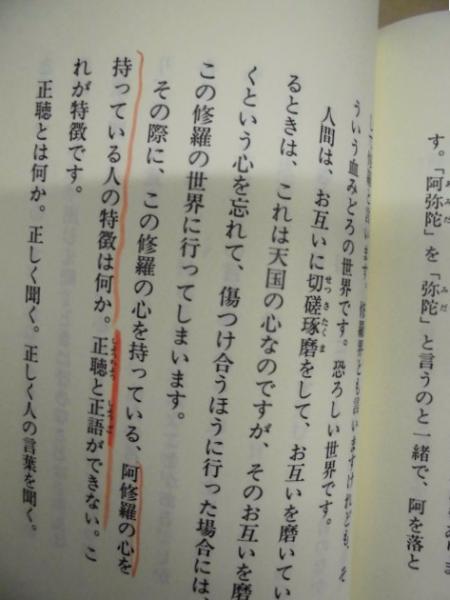 す。「阿弥陀」を「弥陀」と言うのと一緒で、阿を落と
修羅と言います。修羅界とも言いますけれども、そ
ういう血みどろの世界です。恐ろしい世界です。
人間は、お互いに切磋琢磨をして、お互いを磨いてい
るときは、これは天国の心なのですが、そのお互いを磨
くという心を忘れて、傷つけ合うほうに行った場合には、
この修羅の世界に行ってしまいます。
その際に、この修羅の心を持っている、阿修羅の心を
持っている人の特徴は何か。正聴と正語ができない。こ
れが特徴です。
正聴とは何か。正しく聞く。正しく人の言葉を聞く。